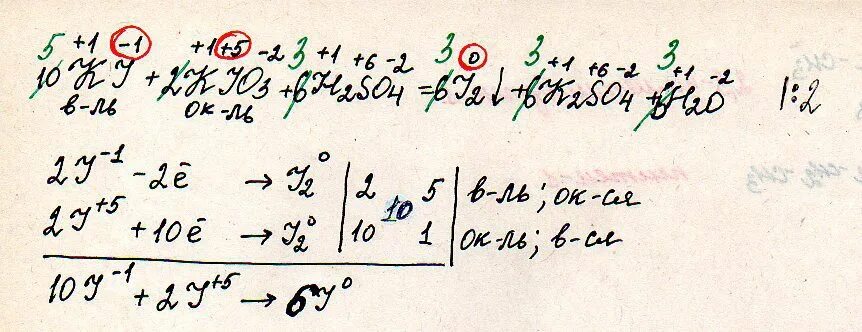 5 +1 -1 +1 +5 -2 3 +1 +6 -2 3 0 3 +1 +6 -2 3 +1 -2
10KJ + 2KJO3 + 6H2SO4 = 6J2↓ + 6K2SO4 + 6H2O |:2
в-ль ок-ль
2J⁻¹ - 2ē → J2⁰ | 2 5 | в-ль; ок-ся
10
2J⁺⁵ + 10ē → J2⁰ | 10 1 | ок-ль; в-ся
10J⁻¹ + 2J⁺⁵ → 6J⁰